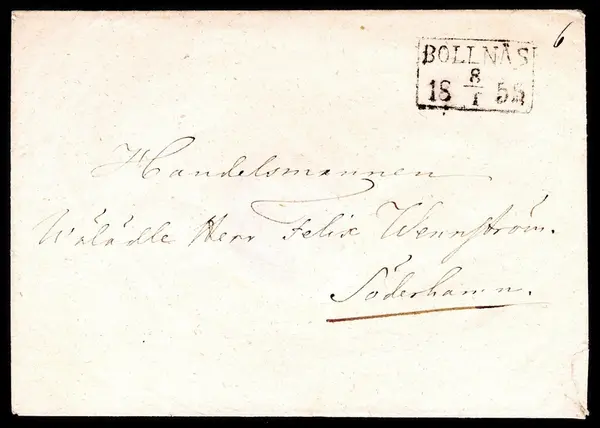 6
BOLLNÄS
18 8/1 58
Handelsmannen
Wälädle Herr Felix Wennström.
Söderhamn.